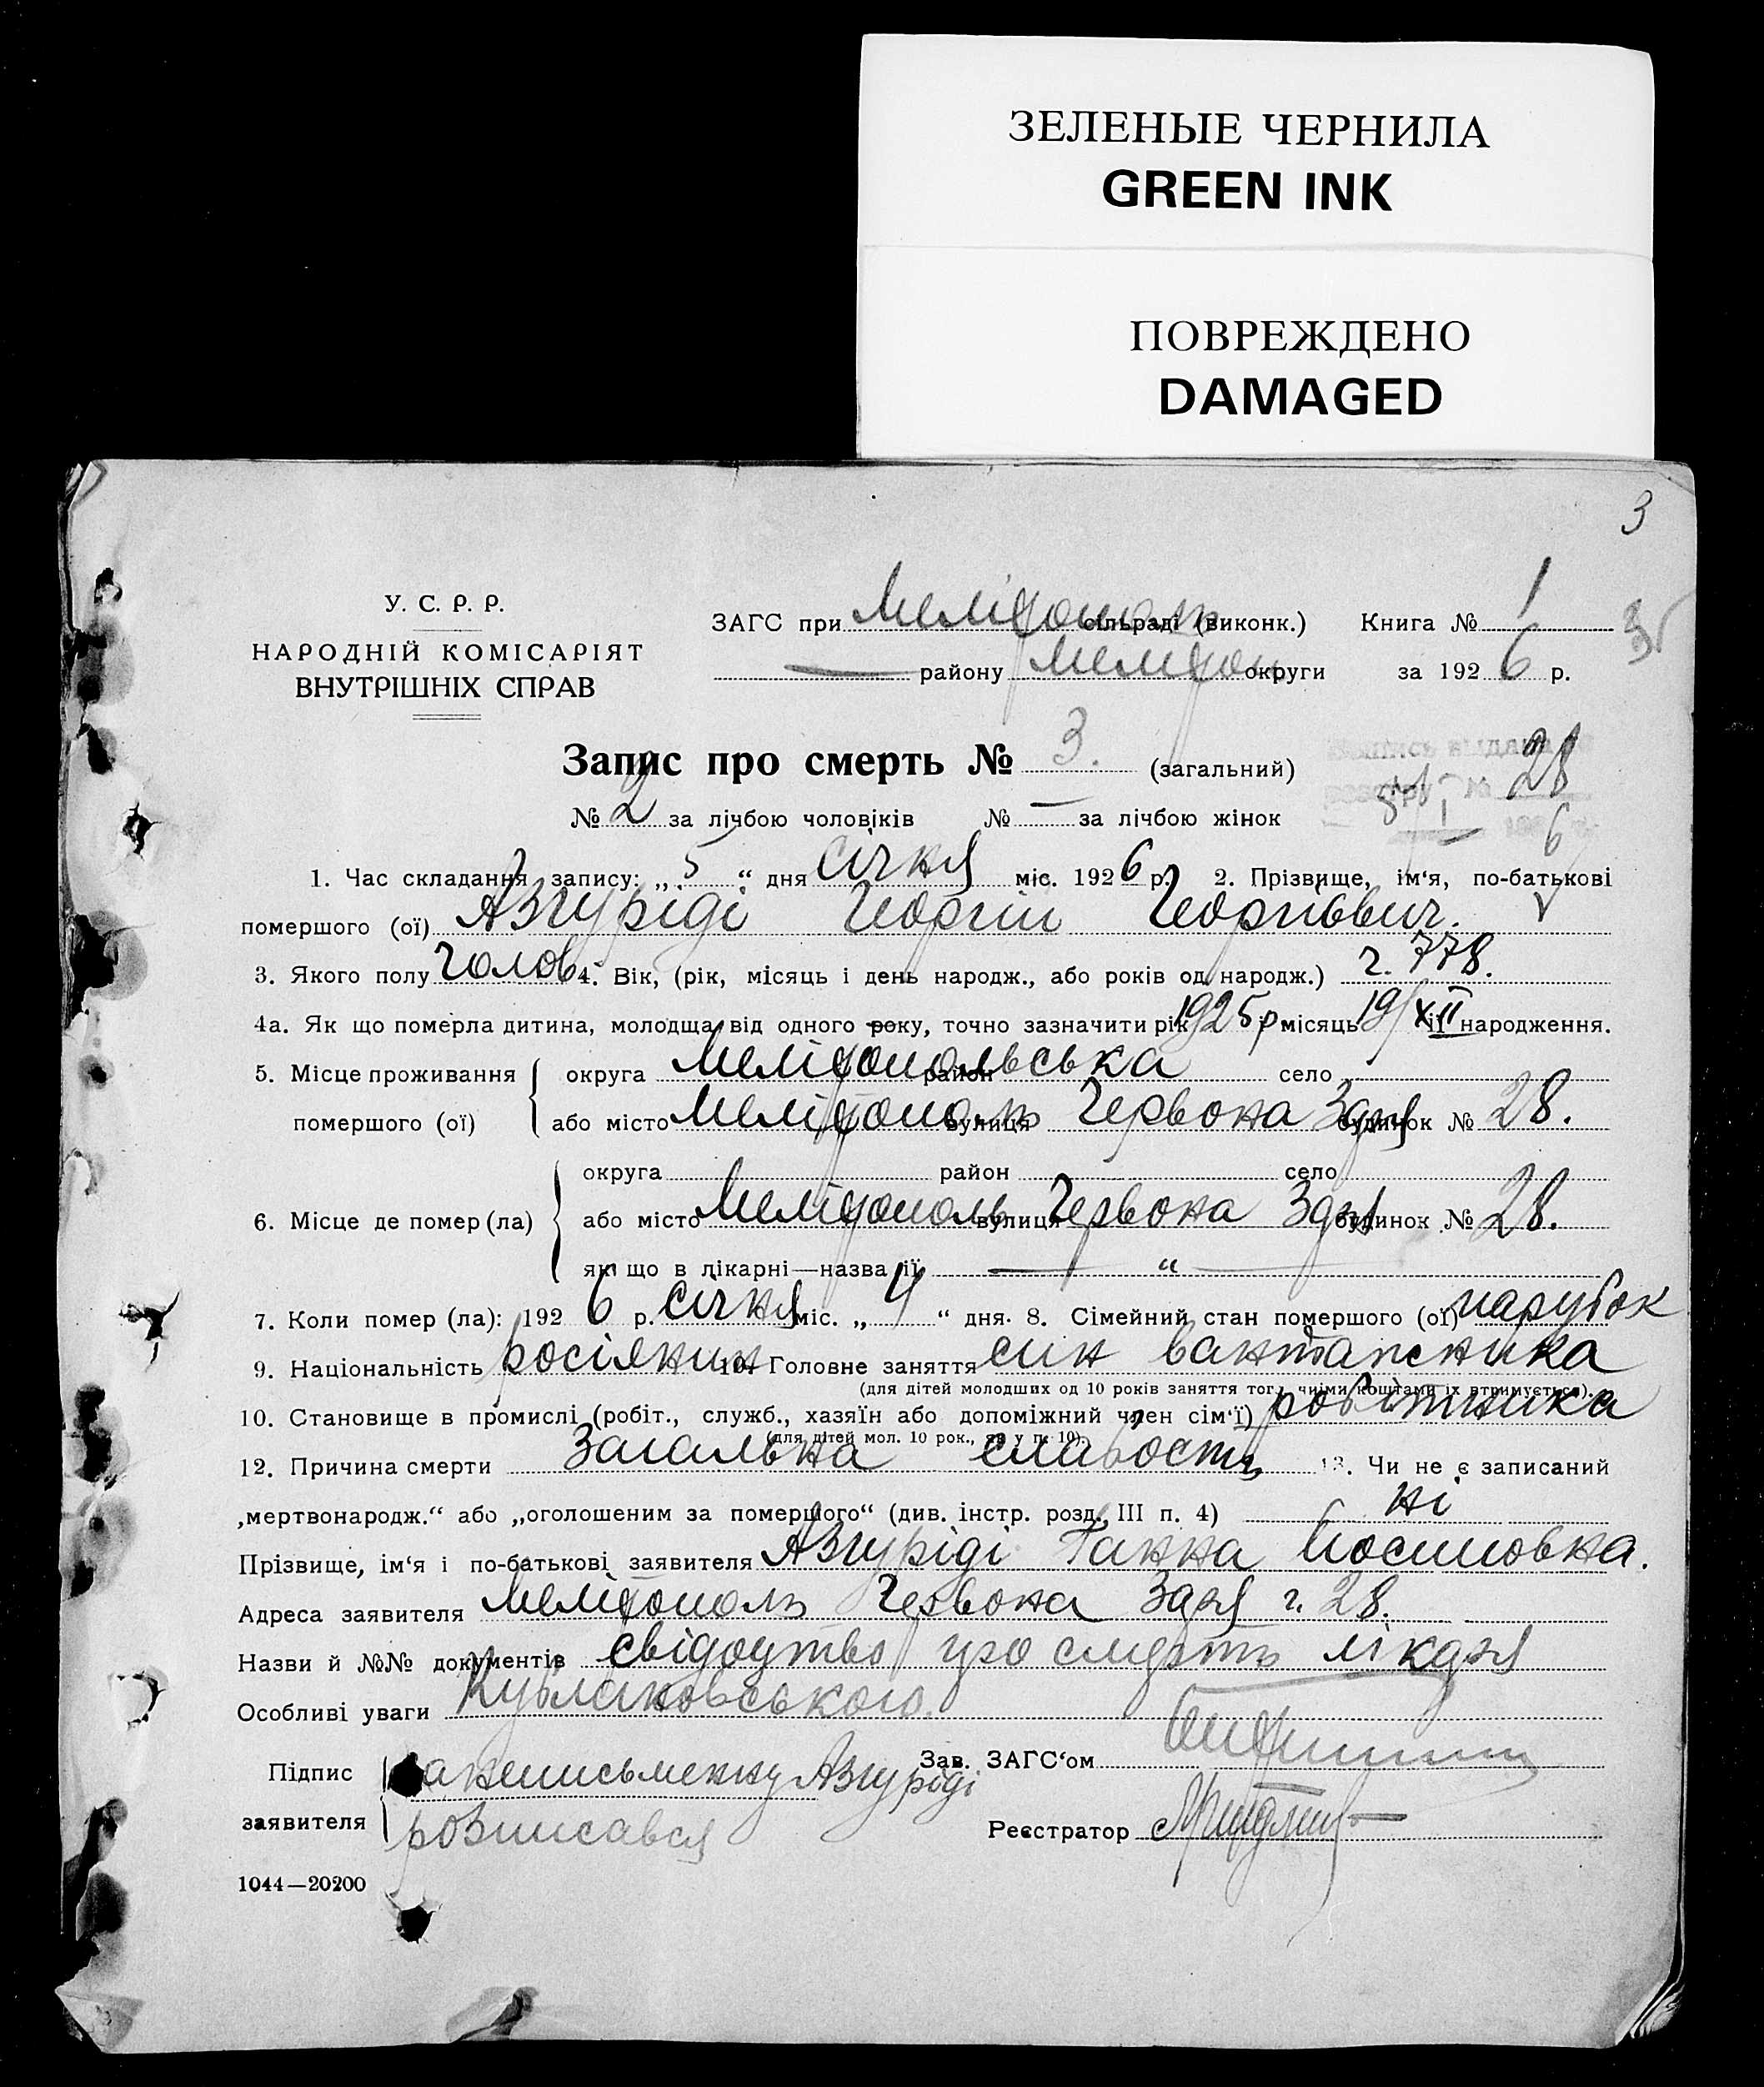 ЗЕЛЕНЫЕ ЧЕРНИЛА
GREEN INK
ПОВРЕЖДЕНО
DAMAGED
3
У. С. Р. Р.
НАРОДНІЙ КОМІСАРІЯТ
ВНУТРІШНІХ СПРАВ
ЗАГС при Мелітополь сільраді (виконк.) Книга № 1
— району Мелітоп округи за 1926 р.
Запис про смерть № 3. (загальний) 28
№ 2 за лічбою чоловіків № — за лічбою жінок
1. Час складання запису: „5“ дня січня міс. 1926 р. 2. Прізвище, ім‘я, по-батькові
помершого (ої) Азгуріді Георгій Георгієвич.
3. Якого полу чолов 4. Вік, (рік, місяць і день народж., або років од народж.) ч. 778.
4а. Як що померла дитина, молодша від одного року, точно зазначити рік 1925 р місяць 19/XII народження.
5. Місце проживання округа Мелітопольська район село
помершого (ої) або місто Мелітополь вулиця Червона Зоря будинок № 28.
округа район село
6. Місце де помер (ла) або місто Мелітополь вулиця Червона Зоря будинок № 28.
як що в лікарні—назва її — “ —
7. Коли помер (ла): 1926 р. січня міс. „4“ дня. 8. Сімейний стан помершого (ої) парубок
9. Національність росіянин 10. Головне заняття син вантажника
(для дітей молодших од 10 років заняття того, чиїми коштами їх втримується).
10. Становище в промислі (робіт., служб., хазяїн або допоміжний член сім‘ї) робітника
(для дітей мол. 10 рок., як у п. 10).
12. Причина смерти Загальна слабость 13. Чи не є записаний
„мертвонародж.“ або „оголошеним за помершого“ (див. інстр. розд. III п. 4) ні
Прізвище, ім‘я і по-батькові заявителя Азгуріді Ганна Йосиповна.
Адреса заявителя Мелітополь Червона Зоря ч. 28.
Назви й №№ документів свідоцтво про смерть лікаря
Особливі уваги
Підпис неписьменну Азгуріді Зав. ЗАГС‘ом
заявителя розписався Реєстратор
1044—20200